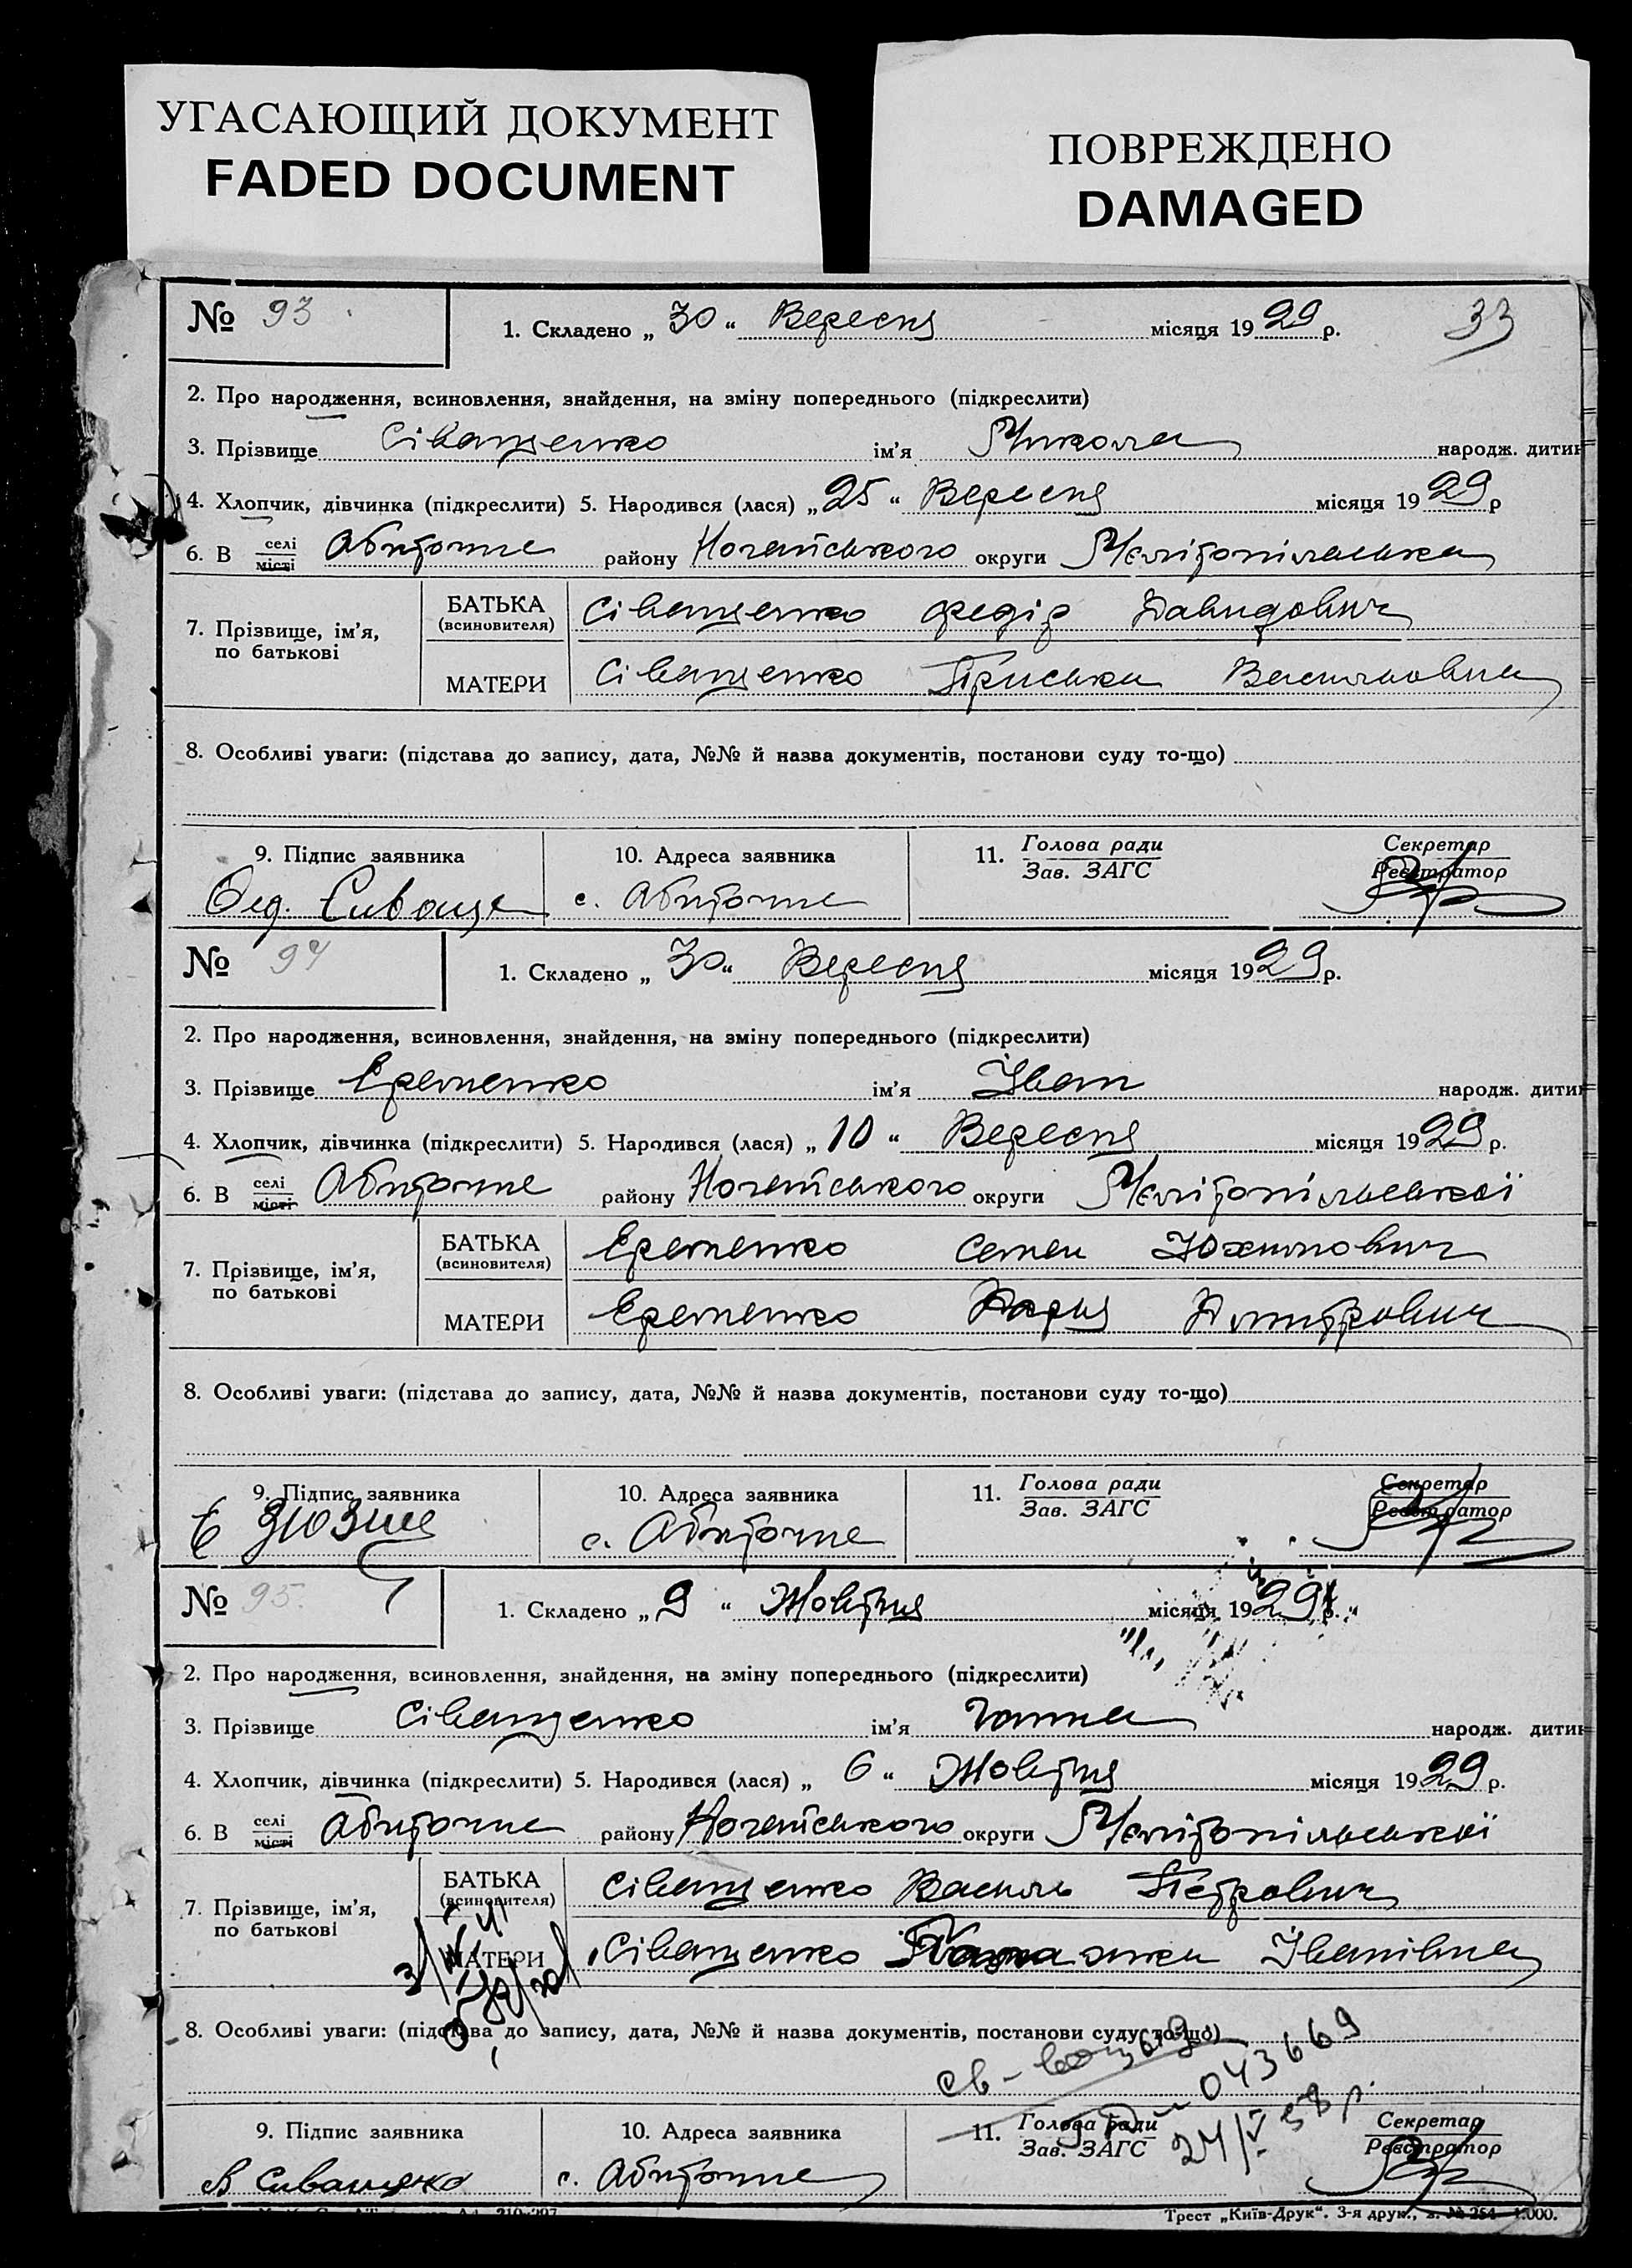 УГАСАЮЩИЙ ДОКУМЕНТ
FADED DOCUMENT
ПОВРЕЖДЕНО
DAMAGED
№ 93
1. Складено „ 30 “ Вересня місяця 1929 р.
33
2. Про народження, всиновлення, знайдення, на зміну попереднього (підкреслити)
3. Прізвище Сіващенко ім’я Микола народж. дитин
4. Хлопчик, дівчинка (підкреслити) 5. Народився (лася) „ 25 “ Вересня місяця 1929 р
6. В селі місті Абиточне району Ногайського округи Мелітопільська
7. Прізвище, ім’я, по батькові
БАТЬКА (всиновителя) Сіващенко Федір Давидович
МАТЕРИ Сіващенко Пріська Василовна
8. Особливі уваги: (підстава до запису, дата, №№ й назва документів, постанови суду то-що)
9. Підпис заявника
10. Адреса заявника
11. Голова ради Зав. ЗАГС
Секретар Реєстратор
Фед. Сиваще
с. Абиточне
№ 94
1. Складено „ 30 “ Вересня місяця 1929 р.
2. Про народження, всиновлення, знайдення, на зміну попереднього (підкреслити)
3. Прізвище Еременко ім’я Іван народж. дитин
4. Хлопчик, дівчинка (підкреслити) 5. Народився (лася) „ 10 “ Вересня місяця 1929 р.
6. В селі місті Абиточне району Ногайського округи Мелітопільської
7. Прізвище, ім’я, по батькові
БАТЬКА (всиновителя) Еременко Семен Юхимович
МАТЕРИ Еременко Дария Дмитрович
8. Особливі уваги: (підстава до запису, дата, №№ й назва документів, постанови суду то-що)
9. Підпис заявника
10. Адреса заявника
11. Голова ради Зав. ЗАГС
Секретар Реєстратор
с. Абиточне
№ 95
1. Складено „ 9 “ Жовтня місяця 1929 р.
2. Про народження, всиновлення, знайдення, на зміну попереднього (підкреслити)
3. Прізвище Сіващенко ім’я Ганна народж. дитин
4. Хлопчик, дівчинка (підкреслити) 5. Народився (лася) „ 6 “ Жовтня місяця 1929 р.
6. В селі місті Абиточне району Ногайського округи Мелітопільської
7. Прізвище, ім’я, по батькові
БАТЬКА (всиновителя) Сіващенко Василь Петрович
МАТЕРИ Сіващенко Іванівна
8. Особливі уваги: (підстава до запису, дата, №№ й назва документів, постанови суду то-що)
043669
24/V 58 р.
9. Підпис заявника
10. Адреса заявника
11. Голова ради Зав. ЗАГС
Секретар Реєстратор
В Сиващенко
с. Абиточне
Трест „Київ-Друк“. 3-я друк., з. № 254—1.000.